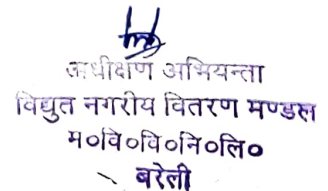 अधीक्षण अभियन्ता
विद्युत नगरीय वितरण मण्डल
म०वि०वि०नि०लि०
बरेली